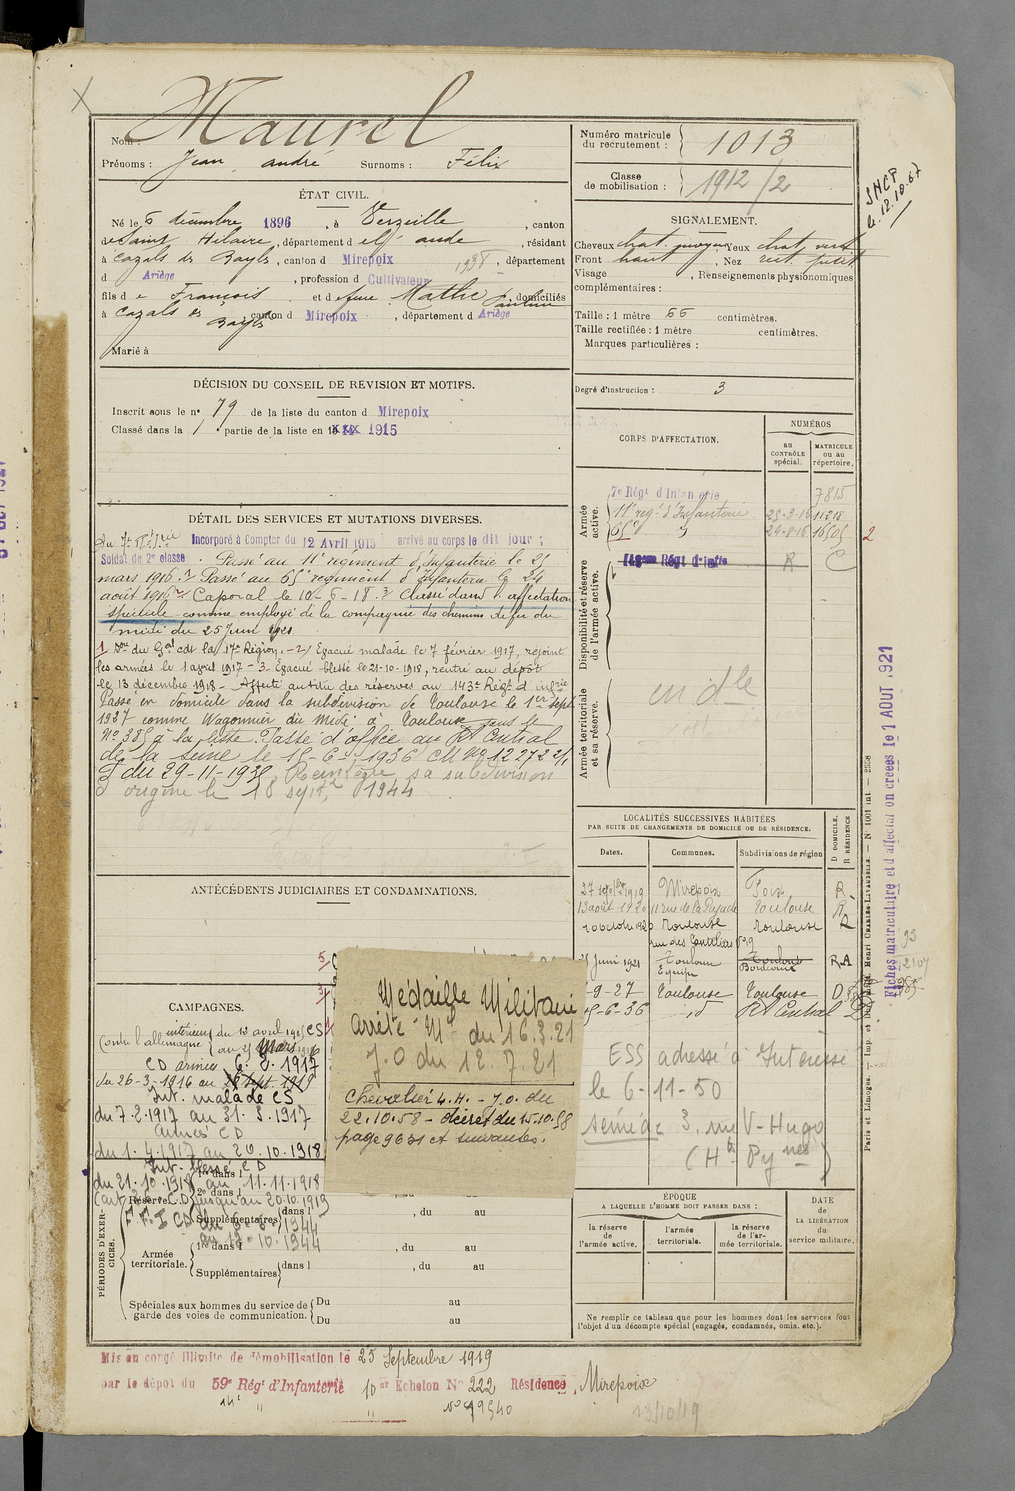 Maurel
Nom :
Prénoms : Jean andré Surnoms : Félix
ÉTAT CIVIL.
Né le 6 décembre 1896, à Verzeille, canton
de Saint Hilaire, département de l'aude, résidant
à Cazals des Bayls, canton d Mirepoix 1938, département
d Ariège, profession d Cultivateur
fils de François et de feue Mathe Pauline, domiciliés
à Cazals des Bayls canton d Mirepoix, département d Ariège
Marié à
DÉCISION DU CONSEIL DE REVISION ET MOTIFS.
Inscrit sous le n° 79 de la liste du canton d Mirepoix
Classé dans la 1 partie de la liste en 1915
DÉTAIL DES SERVICES ET MUTATIONS DIVERSES.
Au 7e Rt d'Irie Incorporé à Compter du 12 Avril 1915 arrivé au corps le dit jour ;
Soldat de 2e classe. Passé au 11e régiment d'Infanterie le 25
mars 1916. 1 Passé au 65e régiment d'Infanterie le 24
août 1916 2 Caporal le 10-6-18. 3 Classé dans l'affectation
spéciale comme employé de la compagnie des chemins de fer du
midi du 25 Juin 1921
1 Don du Gal cdt la 17e Région. - 2 Evacué malade le 7 février 1917, rejoint
les armées le 1 avril 1917 - 3 Evacué blessé le 21-10-1918, rentré au dépôt
le 13 décembre 1918 - Affecté au titre des réserves au 143e Régt d'infrie
Passé en domicile dans la subdivision de Toulouse le 1er sept
1927 comme Wagonnier du Midi à Toulouse sous le
N° 385 à la liste. Passé d'office au Rt Central
de la Seine le 15-6-1936 CM N° 12272 2/1
du 29-11-1930, Réintègre sa subdivision
d'origine le 18 sept 1944
ANTÉCÉDENTS JUDICIAIRES ET CONDAMNATIONS.
5
CAMPAGNES.
Contre l'allemagne intérieur du 12 avril 1915 CS
au 25 Mars 1916
CD armées 6. 2. 1917
du 26-3-1916 au 26 Sept. 1919
Int. malade CS
du 7-2-1917 au 31. 3. 1917
Armées CD
du 1. 4. 1917 au 20. 10. 1918
Int. blessé CD
du 21. 10. 1918 au 11. 11. 1918
CD jusqu'au 20.10.1919
F. F. I CD du 6-6-1944
au 1944
PÉRIODES D'EXERCICES.
Réserve
1re dans l
2e dans l
Supplémentaires dans l , du au
Armée territoriale.
1re dans l , du au
Supplémentaires dans l , du au
Spéciales aux hommes du service de garde des voies de communication.
Du au
Du au
Médaille Militaire
arrêté Ml du 16.3.21
J.O du 12.7.21
Chevalier L.H. - J.O. du
22.10.58 - décret du 15.10.58
page 9631 et suivantes.
Numéro matricule du recrutement : 1013
Classe de mobilisation : 1912/2
SNCF
le 12.10.67
SIGNALEMENT.
Cheveux chat. moyen Yeux chat. vert
Front haut, Nez rect. petit
Visage , Renseignements physionomiques
complémentaires :
Taille : 1 mètre 66 centimètres.
Taille rectifiée : 1 mètre centimètres.
Marques particulières :
Degré d'instruction : 3
CORPS D'AFFECTATION.
NUMÉROS
au CONTRÔLE spécial.
MATRICULE ou au répertoire.
Armée active.
7e Régt d'Infanterie 7815
11e reg. d'Infanterie 25-3-16 11218
65e 24-8-16 16505 2
Disponibilité et réserve de l'armée active.
143eme Régt d'Infie R C
Armée territoriale et sa réserve.
en dle
LOCALITÉS SUCCESSIVES HABITÉES
PAR SUITE DE CHANGEMENTS DE DOMICILE OU DE RÉSIDENCE.
Dates. Communes. Subdivisions de région
D DOMICILE. R RÉSIDENCE
27 septbre 1919 Mirepoix Foix R
13 août 1920 Toulouse R
20 octobre 1920 Toulouse Toulouse R
rue des Gantelliers
25 Juin 1921 Toulouse Toulouse R.A
Equipe Bordeaux
1-9-27 Toulouse Toulouse D
15-6-36 d° Rt Central
ESS adressé à Intéressé
le 6-11-50
3, rue V-Hugo
(Htes Pynées)
ÉPOQUE
A LAQUELLE L'HOMME DOIT PASSER DANS :
la réserve de l'armée active.
l'armée territoriale.
la réserve de l'armée territoriale.
DATE de LA LIBÉRATION du service militaire.
Ne remplir ce tableau que pour les hommes dont les services font
l'objet d'un décompte spécial (engagés, condamnés, omis, etc.).
Fiches matriculaire et d'affectation créées le 1 AOUT 1921
Paris et Limoges. — Imp. et Henri CHARLES-LAVAUZELLE. — N° 1001 — 2558
Mis en congé illimité de démobilisation le 25 Septembre 1919
par le dépôt du 59e Régt d'Infanterie 10 er Echelon N° 222 Résidence, Mirepoix
14e " " N° 19540
13/10/19